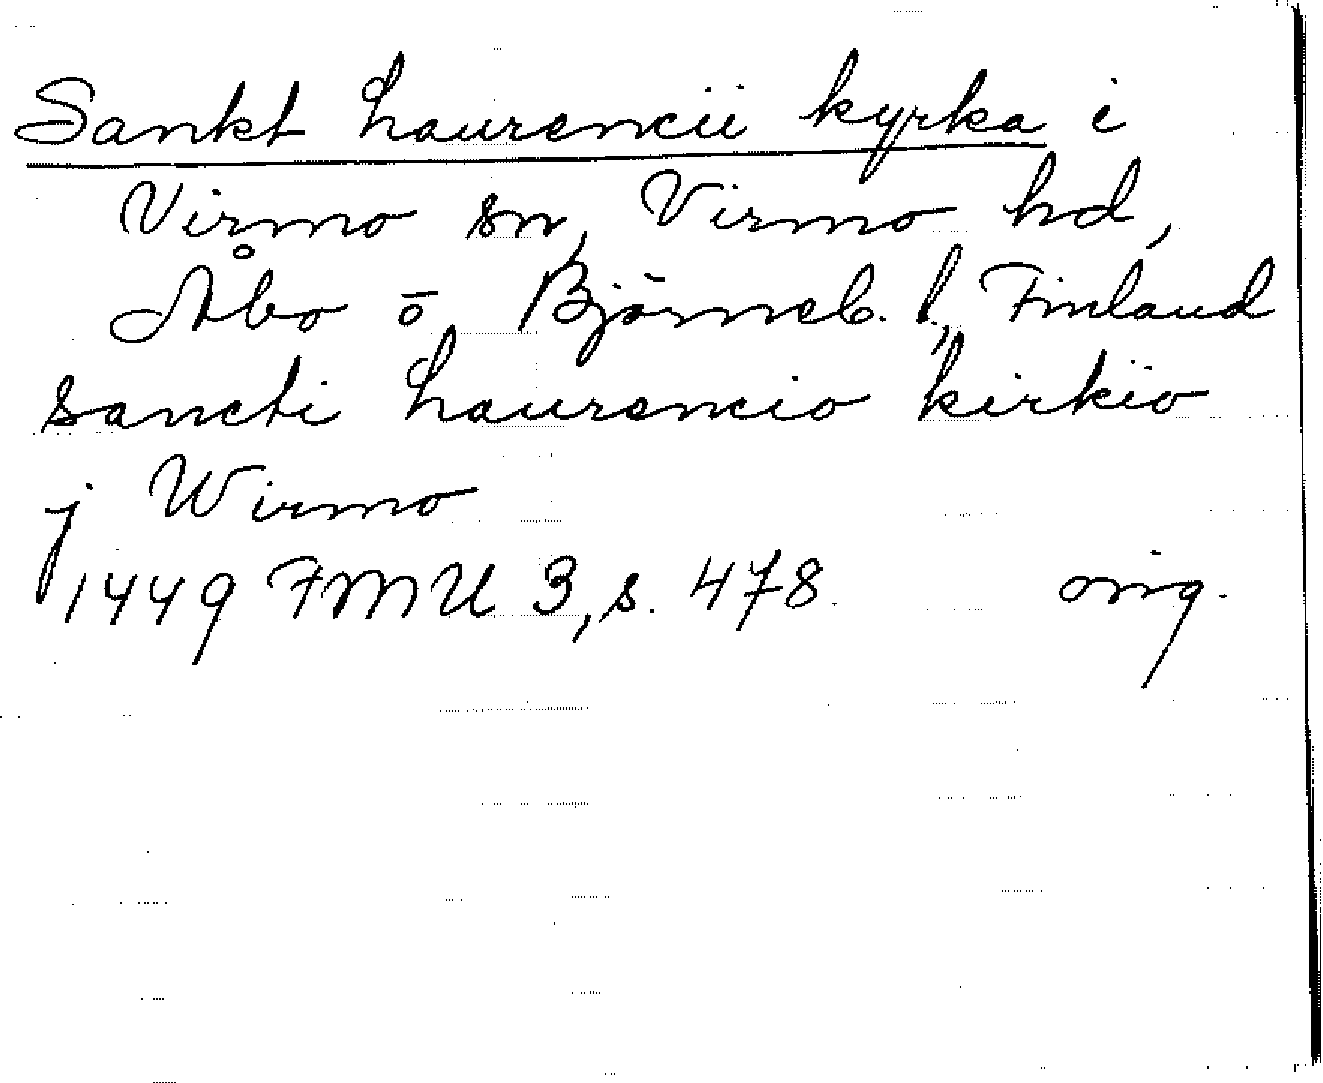 Sankt Laurencii kyrka i
Virmo sn, Virmo hd,
Åbo o Björneb. l, Finland
sancti Laurencio kirkio
j Wirmo
1449 FMU 3, s. 478. orig.